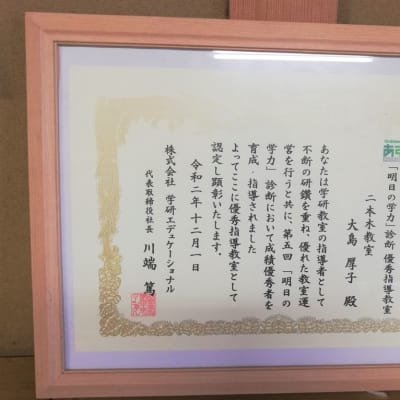 「明日の学力」診断 優秀指導教室
二本木教室
大島 厚子 殿
あなたは学研教室の指導者として
不断の研鑽を重ね、優れた教室運
営を行うと共に、第五回「明日の
学力」診断において成績優秀者を
育成・指導されました
よってここに優秀指導教室として
認定し顕彰いたします。
令和二年十二月一日
株式会社 学研エデュケーショナル
代表取締役社長 川端 篤